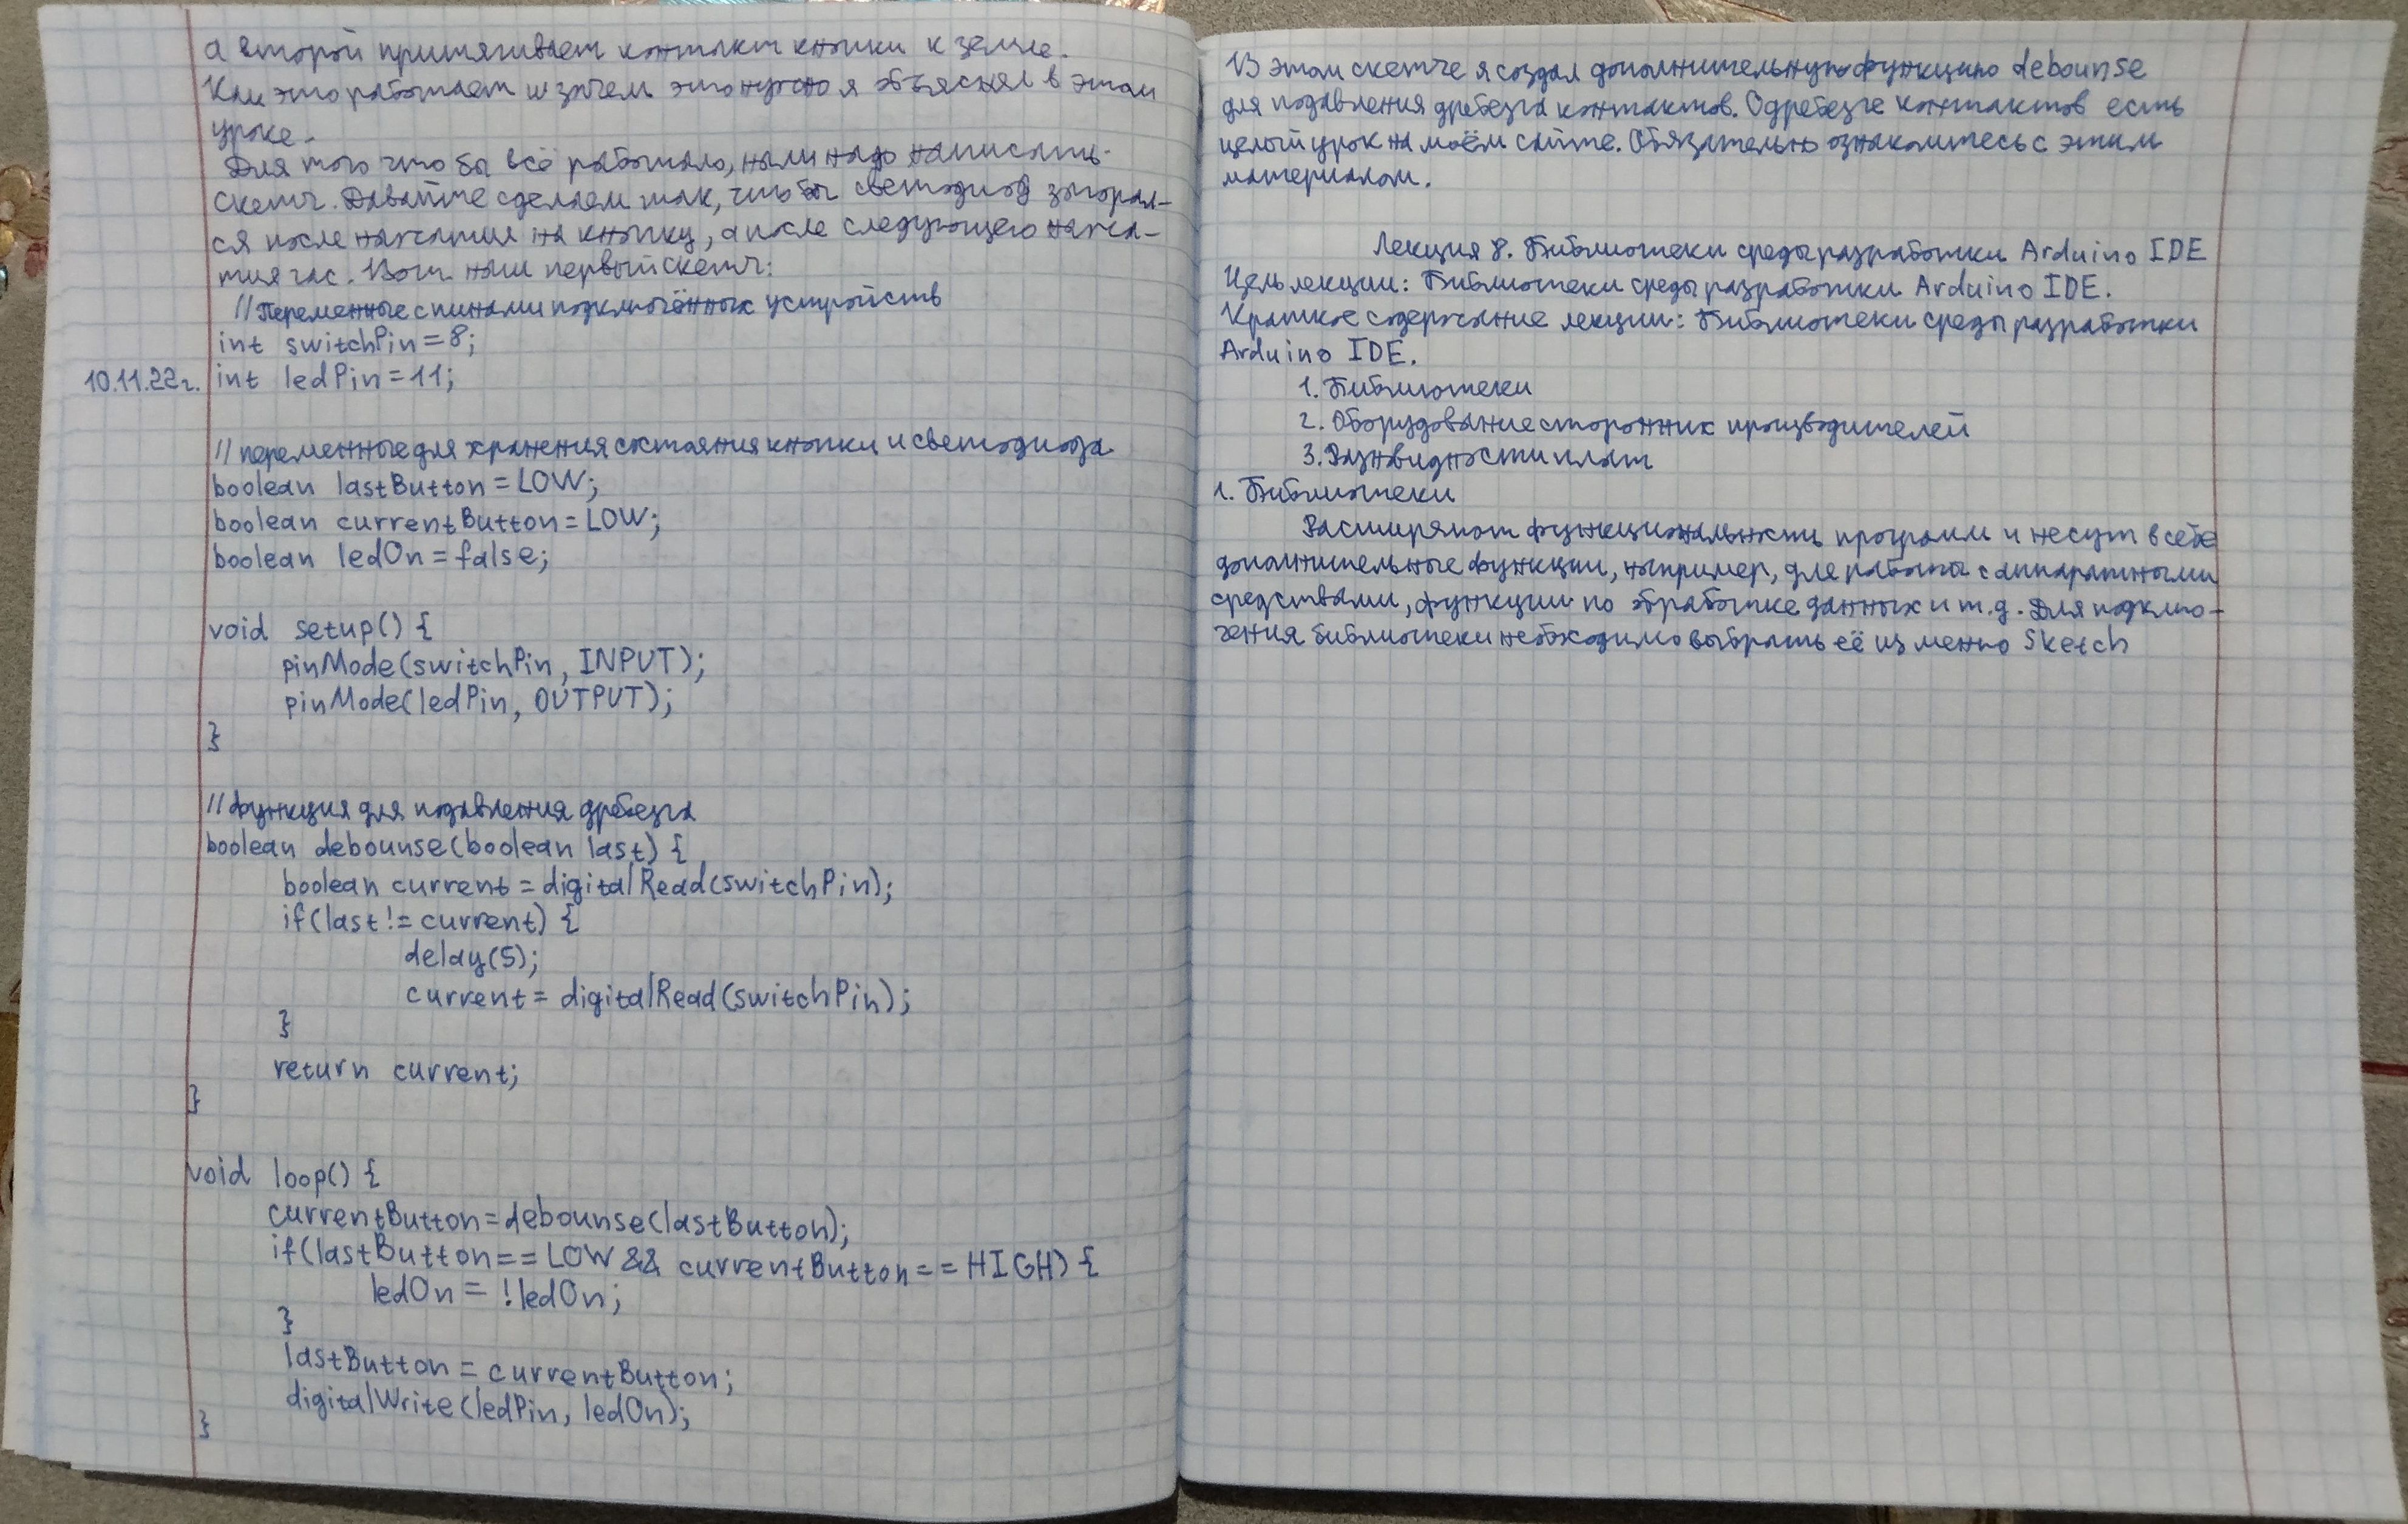 а второй притягивает контакт кнопки к земле.
Как это работает и зачем это нужно я объяснял в этом
уроке.
Для того что бы всё работало, нам надо написать
скетч. Давайте сделаем так, что бы светодиод загорал-
ся после нажатия на кнопку, а после следующего нажа-
тия гас. Вот наш первый скетч:
//Переменные с пинами подключённых устройств
int switchPin=8;
10.11.22г. int ledPin=11;
// переменные для хранения состояния кнопки и светодиода
boolean lastButton=LOW;
boolean currentButton=LOW;
boolean ledOn=false;
void setup() {
pinMode(switchPin, INPUT);
pinMode(ledPin, OUTPUT);
}
//функция для подавления дребезга
boolean debounse(boolean last) {
boolean current=digitalRead(switchPin);
if(last!=current) {
delay(5);
current=digitalRead(switchPin);
}
return current;
}
void loop() {
currentButton=debounse(lastButton);
if(lastButton==LOW && currentButton==HIGH) {
ledOn=!ledOn;
}
lastButton=currentButton;
digitalWrite(ledPin, ledOn);
}
В этом скетче я создал дополнительную функцию debounse
для подавления дребезга контактов. О дребезге контактов есть
целый урок на моём сайте. Обязательно ознакомитесь с этим
материалом.
Лекция 8. Библиотеки среды разработки Arduino IDE
Цель лекции: Библиотеки среды разработки Arduino IDE.
Краткое содержание лекции: Библиотеки среды разработки
Arduino IDE.
1. Библиотеки
2. Оборудование сторонних производителей
3. Разновидности плат
1. Библиотеки
Расширяют функциональность программ и несут в себе
дополнительные функции, например, для работы с аппаратными
средствами, функции по обработке данных и т.д. Для подклю-
чения библиотеки необходимо выбрать её из меню Sketch